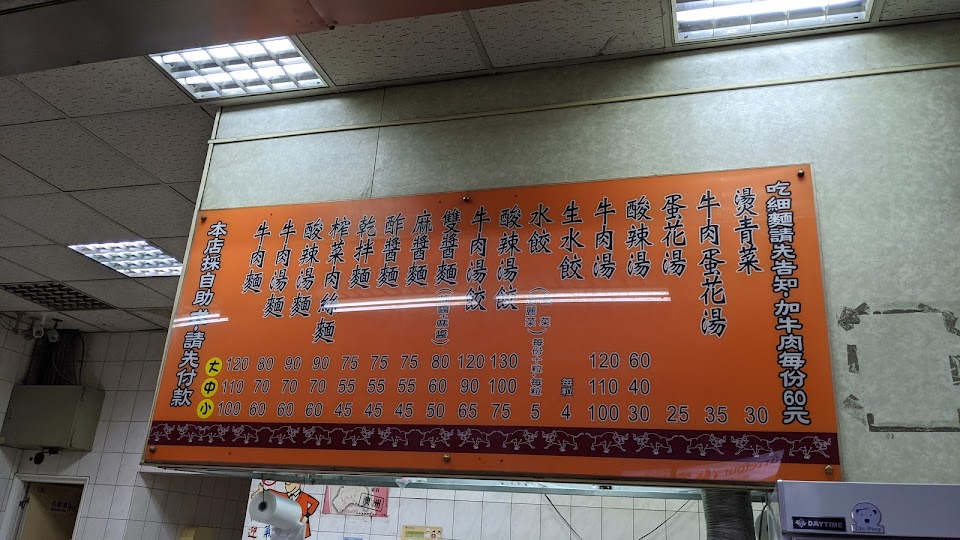 本店採自助 請先付款
牛肉麵
牛肉湯麵
酸辣湯麵
榨菜肉絲麵
乾拌麵
酢醬麵
麻醬麵
雙醬麵
牛肉湯餃
酸辣湯餃
水餃
每份十粒 每粒
生水餃
每粒
牛肉湯
酸辣湯
蛋花湯
牛肉蛋花湯
燙青菜
吃細麵請先告知,加牛肉每份60元
大 120 80 90 90 75 75 75 80 120 130 120 60
中 110 70 70 70 55 55 55 60 90 100 110 40
小 100 60 60 60 45 45 45 50 65 75 5 4 100 30 25 35 30
澳洲
DAYTIME